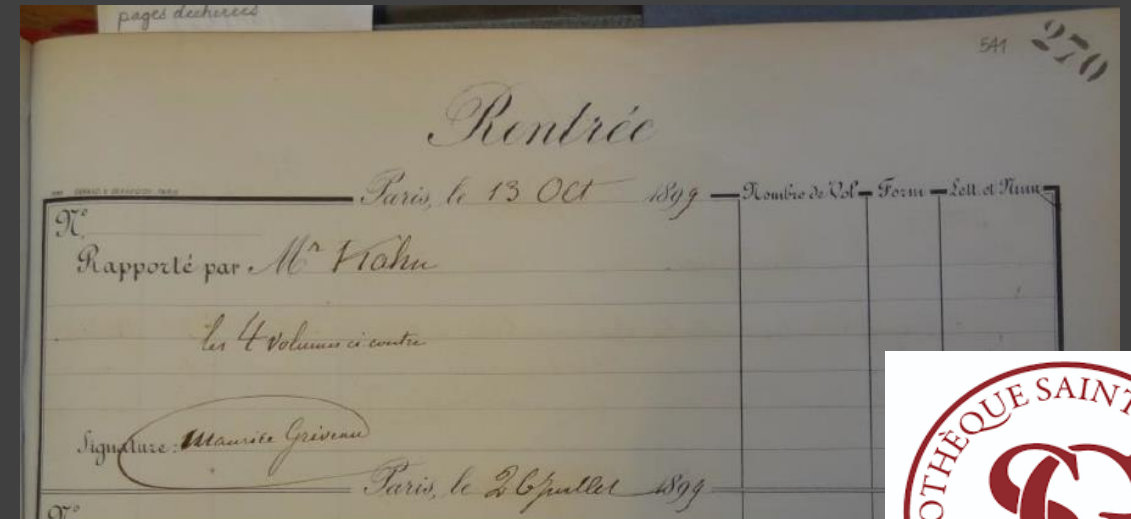 pages déchirées
541 270
Rentrée
Paris, le 13 Oct 1899 Nombre de Vol Form Lett. et Num
N°
Rapporté par Mr Kahn
les 4 volumes ci contre
Signature: Maurice Griveau
Paris, le 26 juillet 1899
N°
OTHÈQUE SAINT